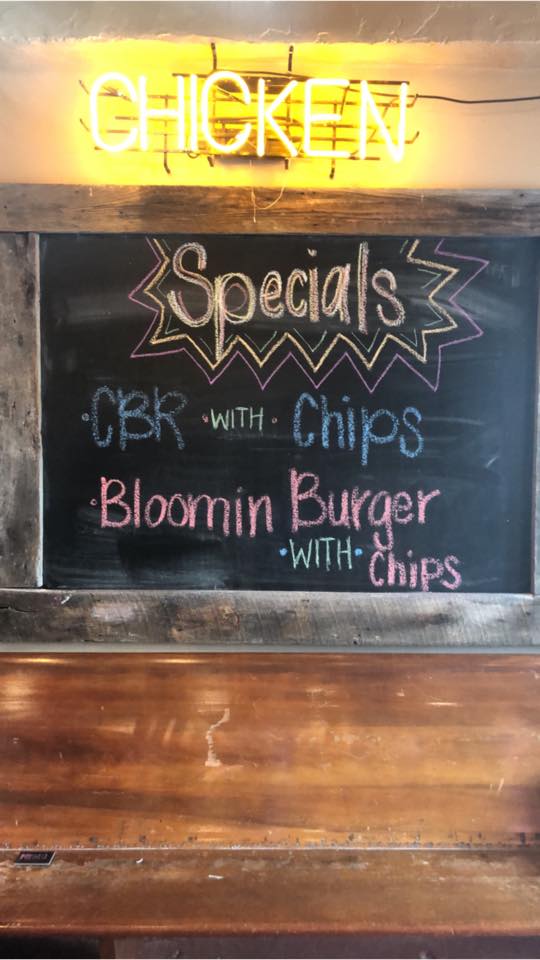 CHICKEN
Specials
CBR • WITH • Chips
Bloomin Burger
• WITH • Chips